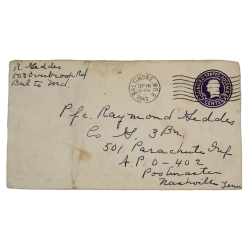 R Geddes
503 Overbrook Rd
Balto Md.
BALTIMORE, MD.
1943
UNITED STATES POSTAGE
3 CENTS 3
Pfc. Raymond Geddes
Co G 3 Bn
501 Parachute Inf
A.P.O - 402
Postmaster
Nashville Tenn